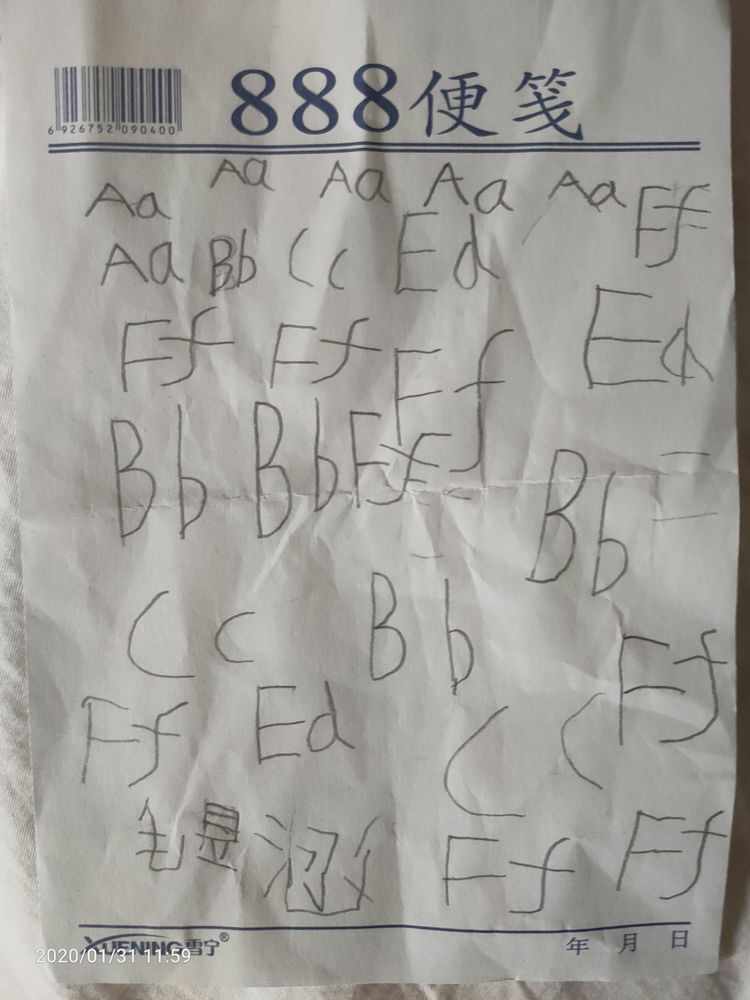 888便笺
6 926752 090400
Aa Aa Aa Aa Aa Ff
Aa Bb Cc Ed
Ff Ff Ff Ed
Bb Bb Ff Bb
Cc Bb Ff
Ff Ed Cc
涵 Ff Ff
XUENING雪宁®
年 月 日
2020/01/31 11:59